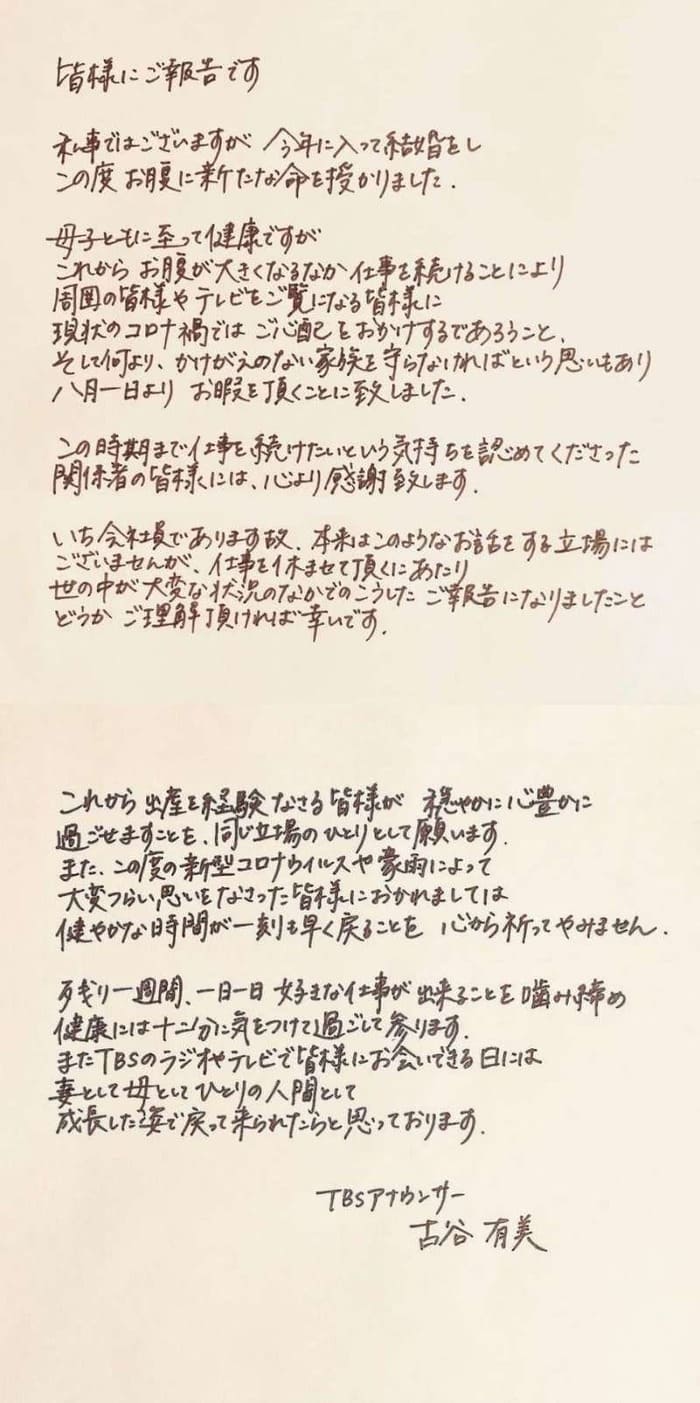 皆様にご報告です
私事ではございますが 今年に入って結婚をし
この度 お腹に新たな命を授かりました.
母子ともに至って健康ですが
これから お腹が大きくなるなか 仕事を続けることにより
周囲の皆様や テレビをご覧になる皆様に
現状のコロナ禍では ご心配をおかけするであろうこと、
そして何より、かけがえのない家族を守らなければという思いもあり
八月一日より お暇を頂くことに致しました.
この時期まで仕事を続けたいという気持ちを認めてくださった
関係者の皆様には、心より感謝致します.
いち会社員であります故、本来はこのようなお話をする立場には
ございませんが、仕事を休ませて頂くにあたり
世の中が大変な状況のなかでのこうした ご報告になりましたこと
どうか ご理解頂ければ幸いです.
これから 出産を経験なさる皆様が 穏やかに心豊かに
過ごせますことを、同じ立場のひとりとして願います.
また、この度の新型コロナウイルスや豪雨によって
大変つらい思いをなさった皆様におかれましては
健やかな時間が一刻も早く戻ることを 心から祈ってやみません.
残り一週間、一日一日 好きな仕事が 出来ることを噛み締め
健康には十二分に気をつけて過ごして参ります.
またTBSのラジオやテレビで皆様にお会いできる日には
妻として母としてひとりの人間として
成長した姿で戻って来られたらと思っております.
TBSアナウンサー
古谷 有美